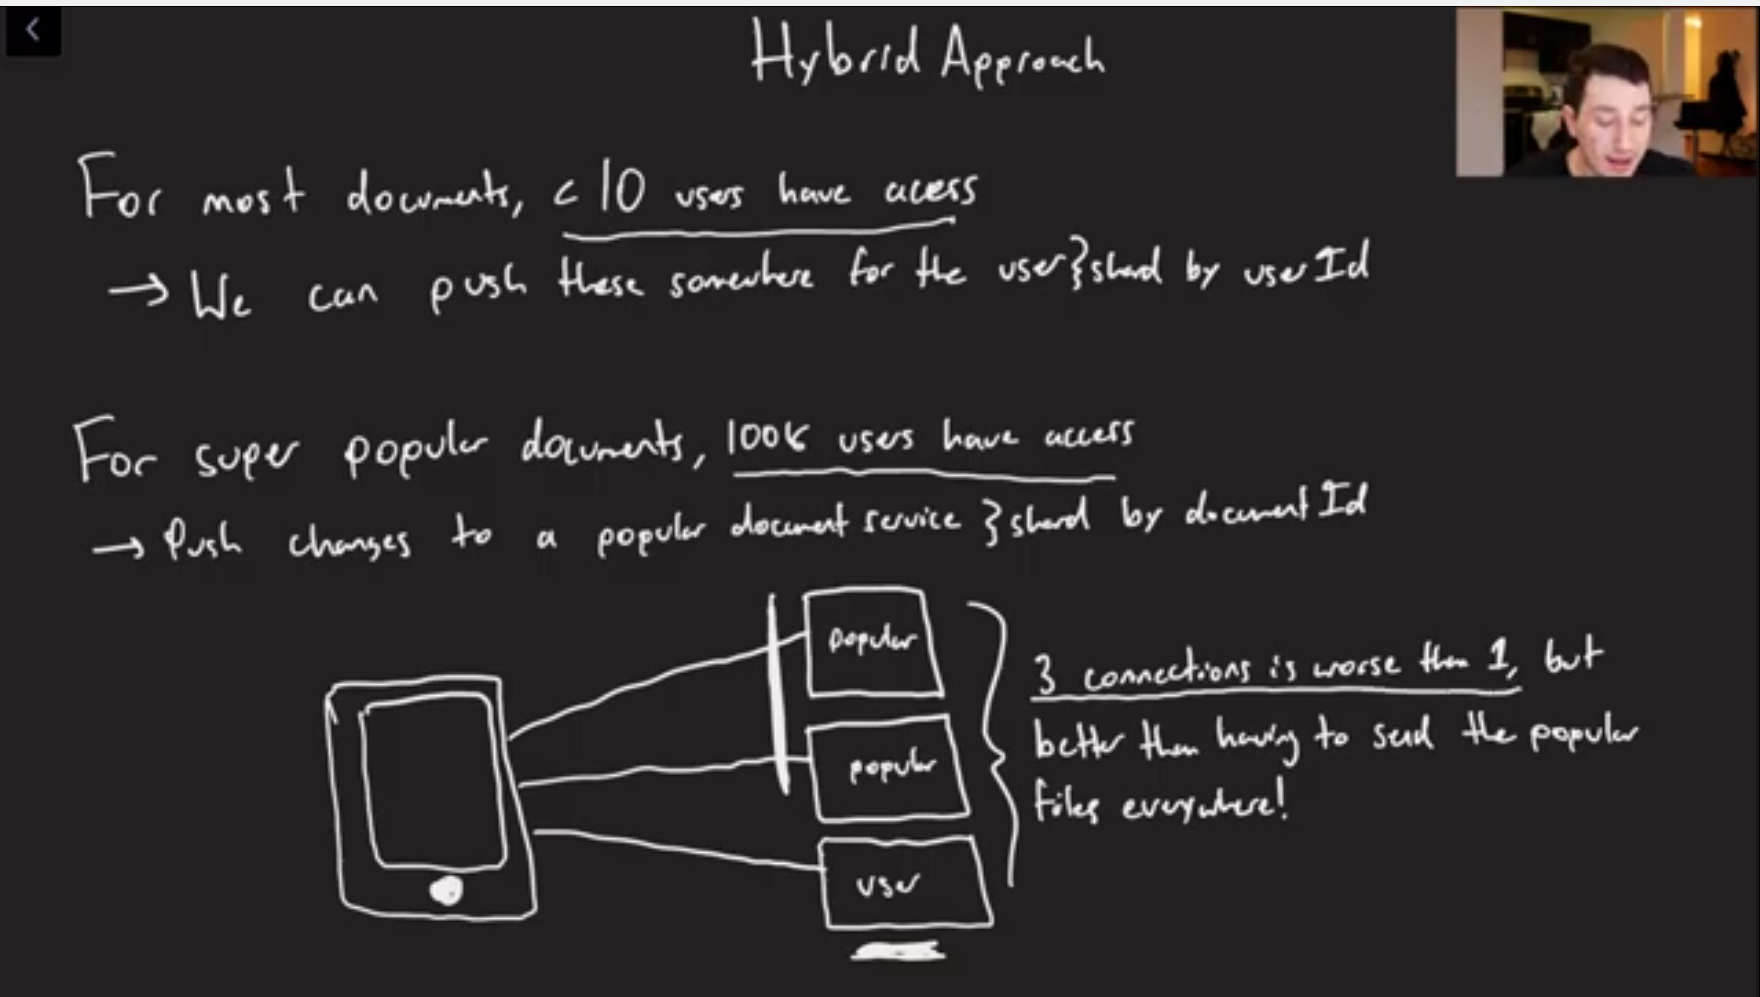 Hybrid Approach
For most documents, < 10 users have acess
→ We can push these somewhere for the user } shard by userId
For super popular documents, 100K users have access
→ Push changes to a popular document service } shard by documentId
popular
popular
user
3 connections is worse than 1, but
better than having to send the popular
files everywhere!